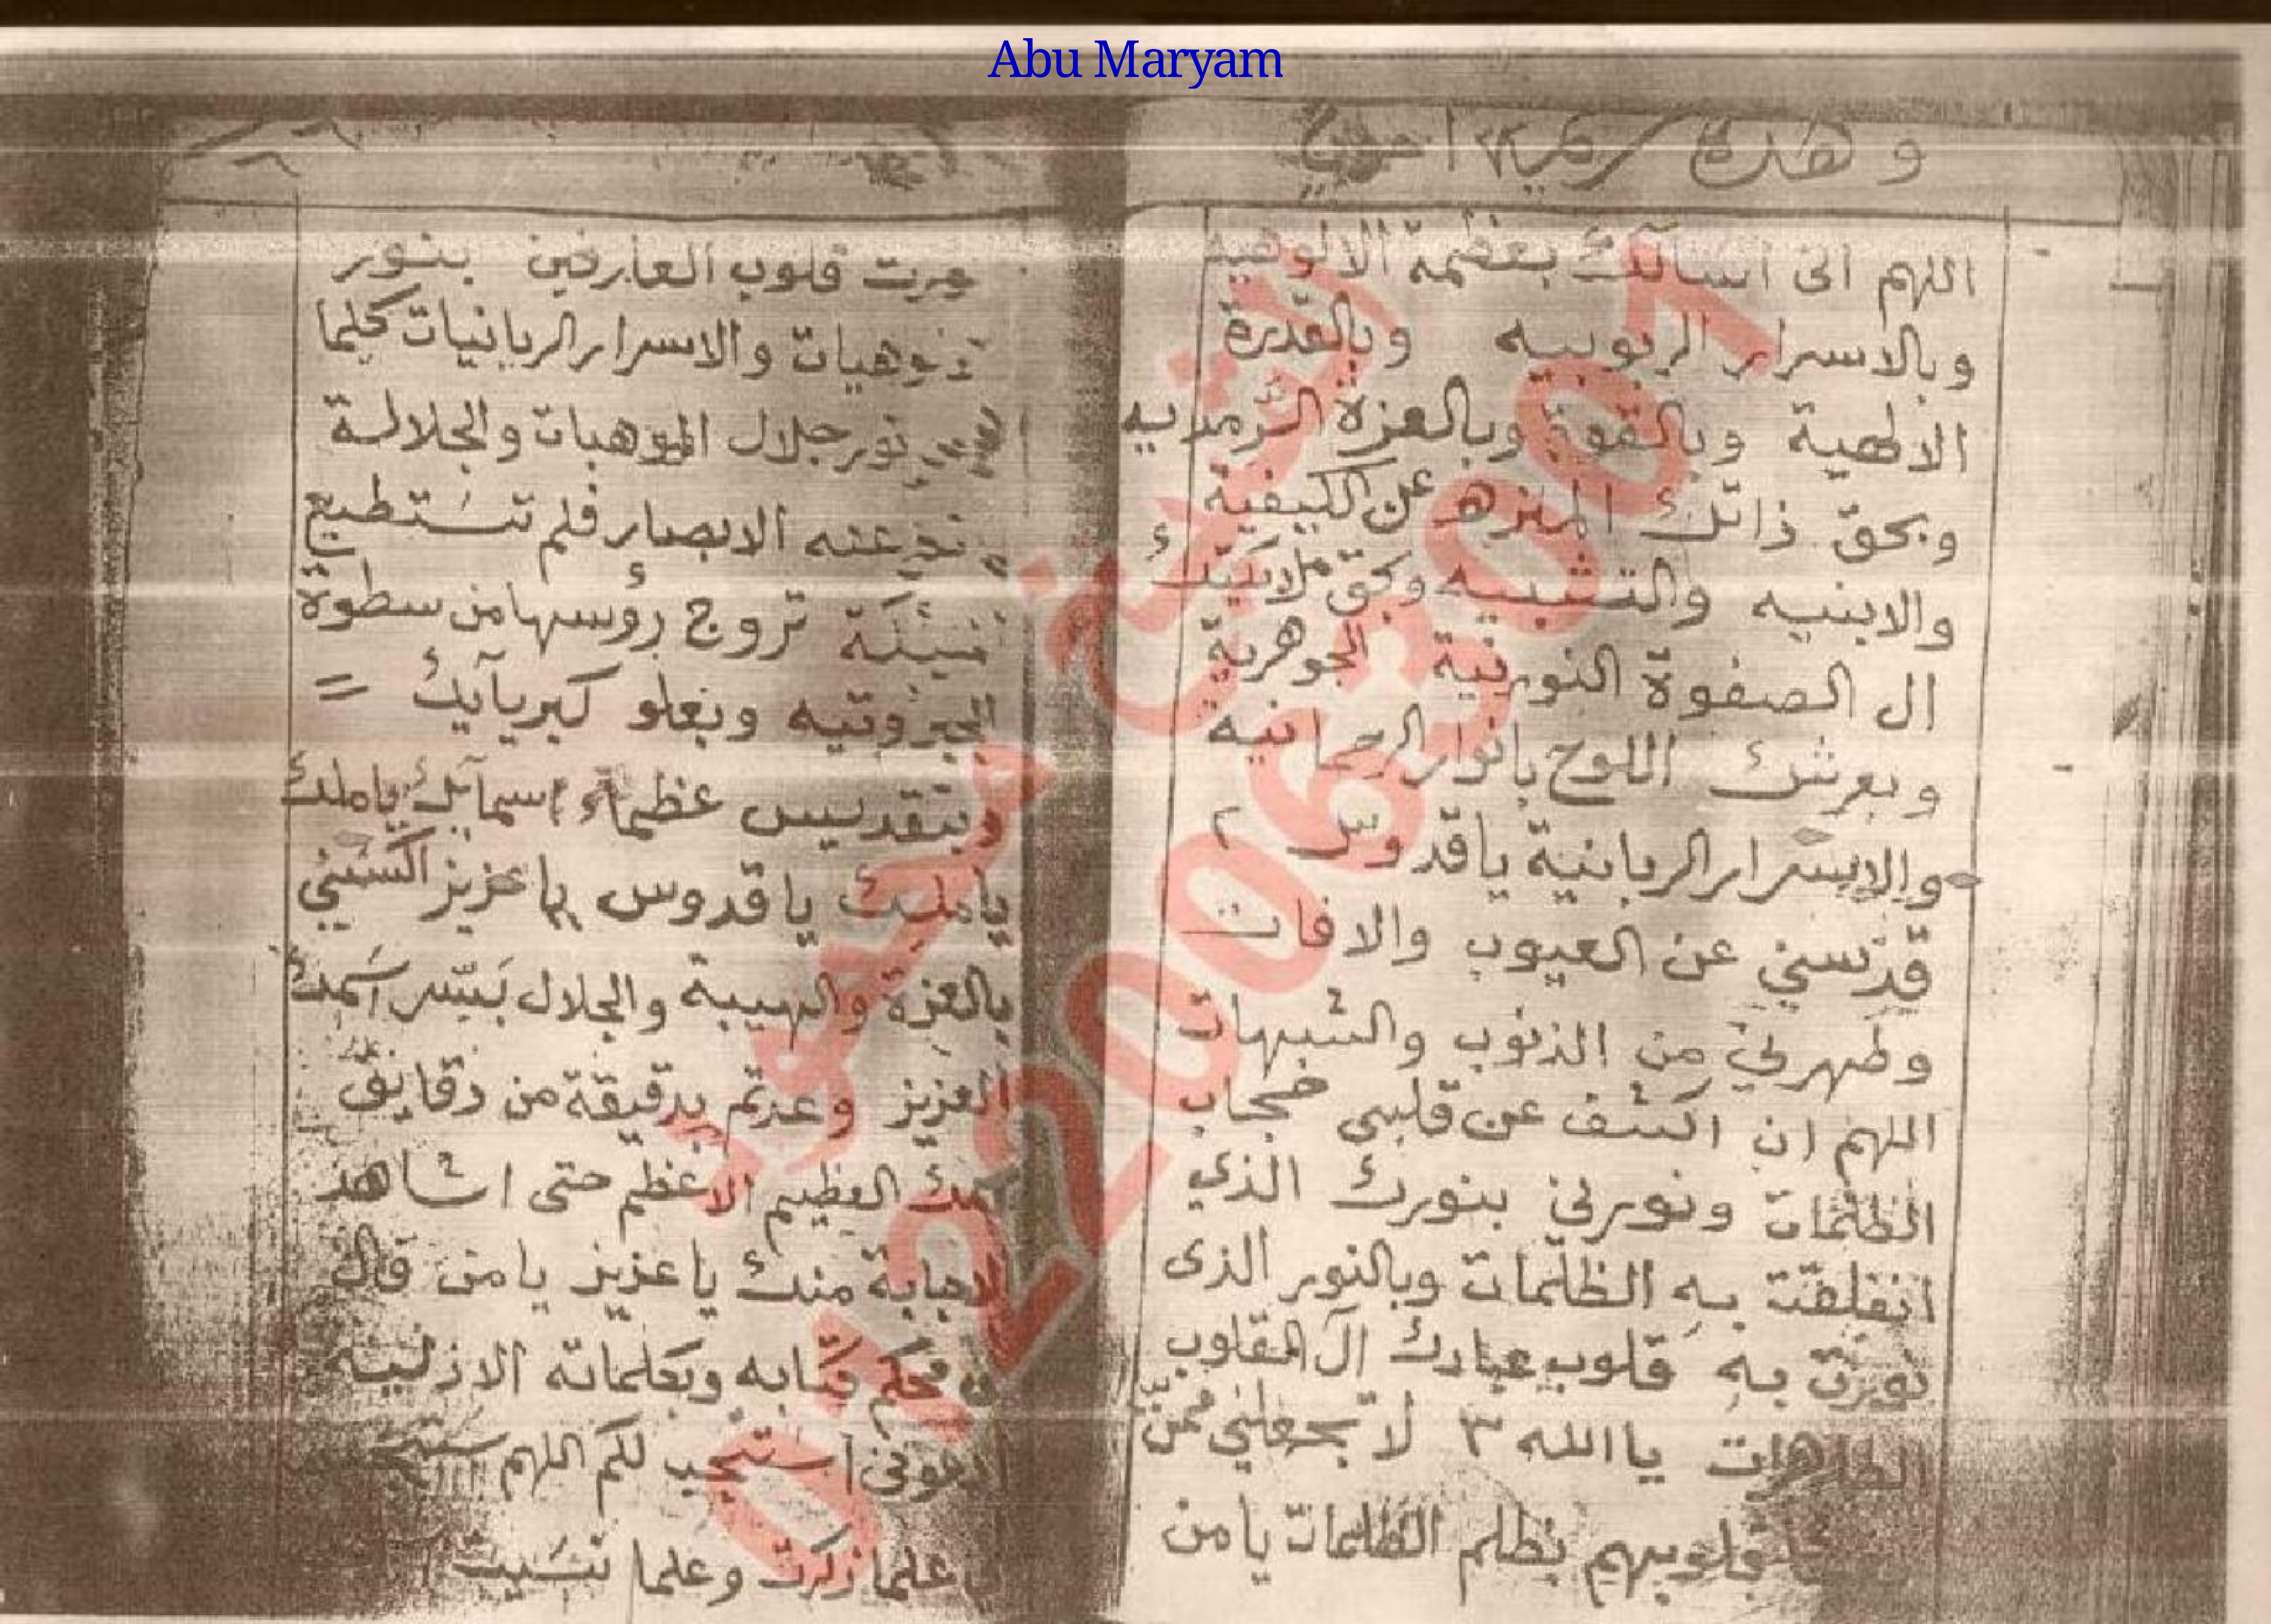 Abu Maryam
اللهم انى اسألك بعظمة الالوهيه
وبالاسرار الربوبيه وبالقدرة
الالهية وبالقوة وبالعزة السرمديه
وبحق ذاتك المنزه عن الكيفية
والابنيه والتشبيه وبحق ملائكتك
ال الصفوة النورنية الجوهرية
وبعرشك اللوح بانوار الرحمانية
والاسرار الربانية ياقدوس ٢
قدسني عن العيوب والافات
وطهرني من الذنوب والشبهات
اللهم ان اكشف عن قلبى حجاب
الظلمات ونورني بنورك الذي
انفلقت به الظلمات وبالنور الذى
نورت به قلوب عبادك آل القلوب
الطاهرات ياالله ٣ لا تجعلني ممن
قلوبهم بظلم الظلمات يامن
قلوب العارفين بنور
والاسرار الربانيات كلما
نور جلال الموهبات والجلالة
عنه الابصار فلم تستطيع
تروج رؤسها من سطوة
الجبروتيه وبعلو كبريآيك =
وبتقديس عظماء اسمآئك ياملك
ياملك ياقدوس ياعزيز اكسنى
بالعزة والهيبة والجلال بسر اسمك
العزيز وعدتم بدقيقة من دقايق
العظيم الاعظم حتى اشاهد
الاجابة منك ياعزيز يامن قال
محكم كتابه وبكلماته الازليه
ادعونى استجب لكم اللهم
علما ذكرت وعلما نسيت
الشيخ محمود
01220063001